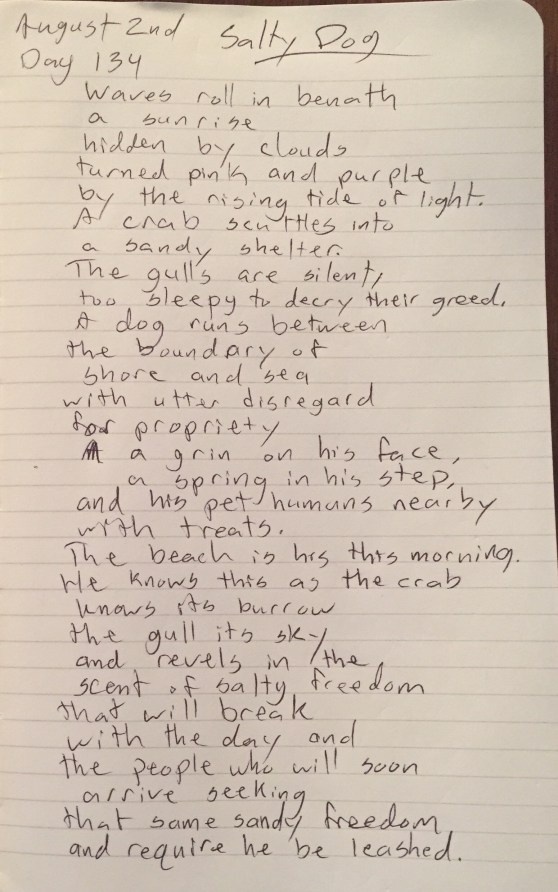 August 2nd Salty Dog
Day 134
Waves roll in benath
a sunrise
hidden by clouds
turned pink and purple
by the rising tide of light.
A crab scuttles into
a sandy shelter.
The gulls are silent,
too sleepy to decry their greed.
A dog runs between
the boundary of
shore and sea
with utter disregard
for propriety
a grin on his face,
a spring in his step,
and his pet humans nearby
with treats.
The beach is his this morning.
He knows this as the crab
knows its burrow
the gull its sky
and revels in the
scent of salty freedom
that will break
with the day and
the people who will soon
arrive seeking
that same sandy freedom
and require he be leashed.